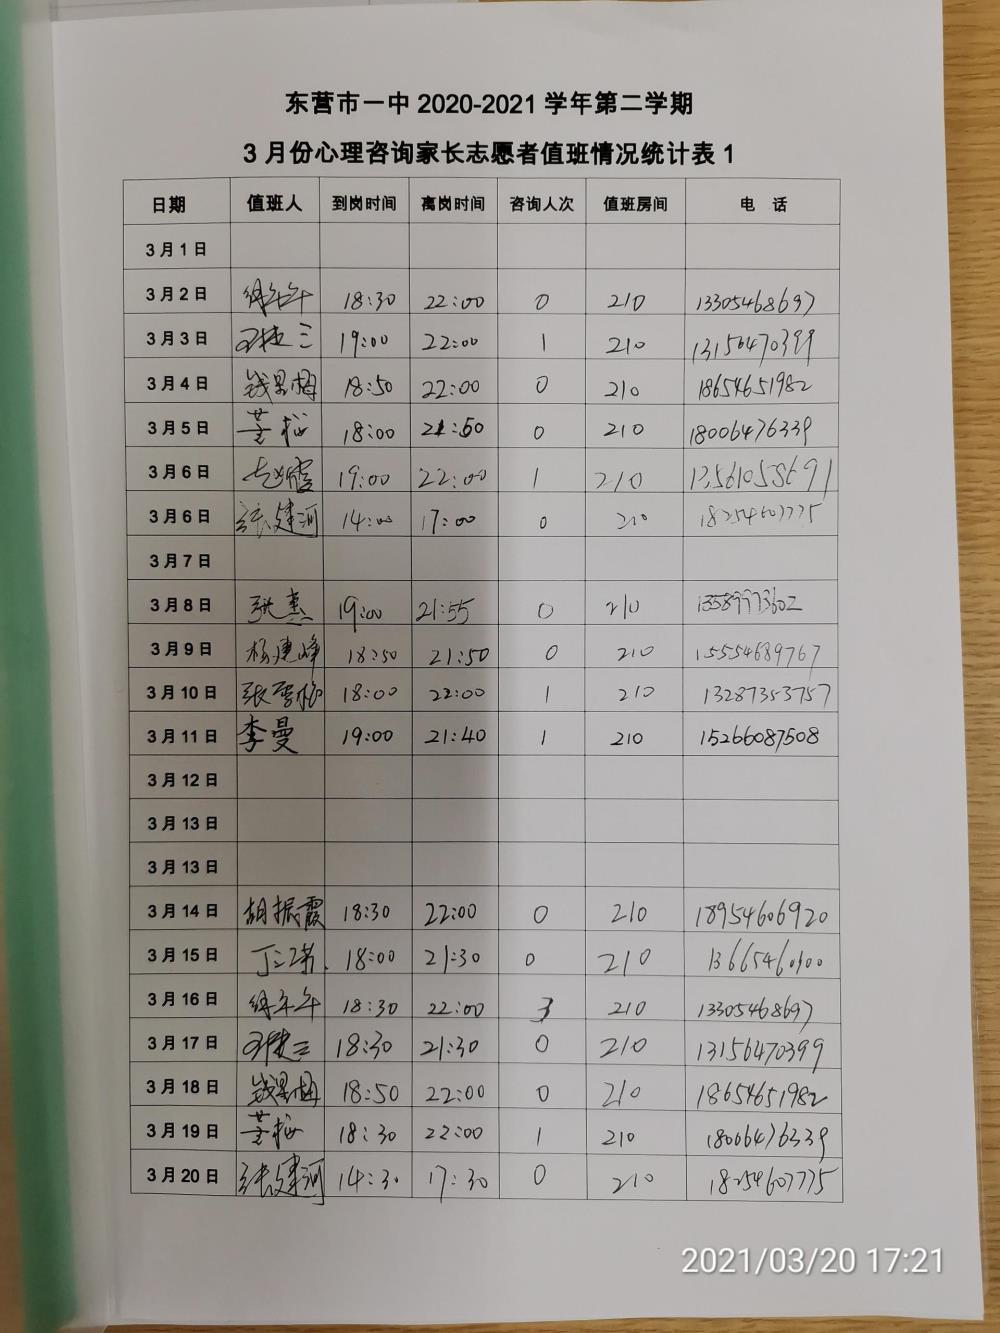 东营市一中 2020-2021 学年第二学期
3 月份心理咨询家长志愿者值班情况统计表 1
日期 值班人 到岗时间 离岗时间 咨询人次 值班房间 电 话
3 月 1 日
3 月 2 日 18:30 22:00 0 210 13305468697
3 月 3 日 19:00 22:00 1 210 13156470399
3 月 4 日 18:50 22:00 0 210 18654651982
3 月 5 日 董梅 18:00 21:50 0 210 18006476339
3 月 6 日 19:00 22:00 1 210 13561055691
3 月 6 日 张建河 14:00 17:00 0 210 18254607775
3 月 7 日
3 月 8 日 张惠 19:00 21:55 0 210 13589973602
3 月 9 日 杨建峰 18:50 21:50 0 210 15554689767
3 月 10 日 18:00 22:00 1 210 13287353757
3 月 11 日 李曼 19:00 21:40 1 210 15266087508
3 月 12 日
3 月 13 日
3 月 13 日
3 月 14 日 胡振霞 18:30 22:00 0 210 18954606920
3 月 15 日 18:00 21:30 0 210
3 月 16 日 18:30 22:00 3 210 13305468697
3 月 17 日 18:30 21:30 0 210 13156470399
3 月 18 日 18:50 22:00 0 210 18654651982
3 月 19 日 董梅 18:30 22:00 1 210 18006476339
3 月 20 日 张建河 14:30 17:30 0 210 18254607775
2021/03/20 17:21